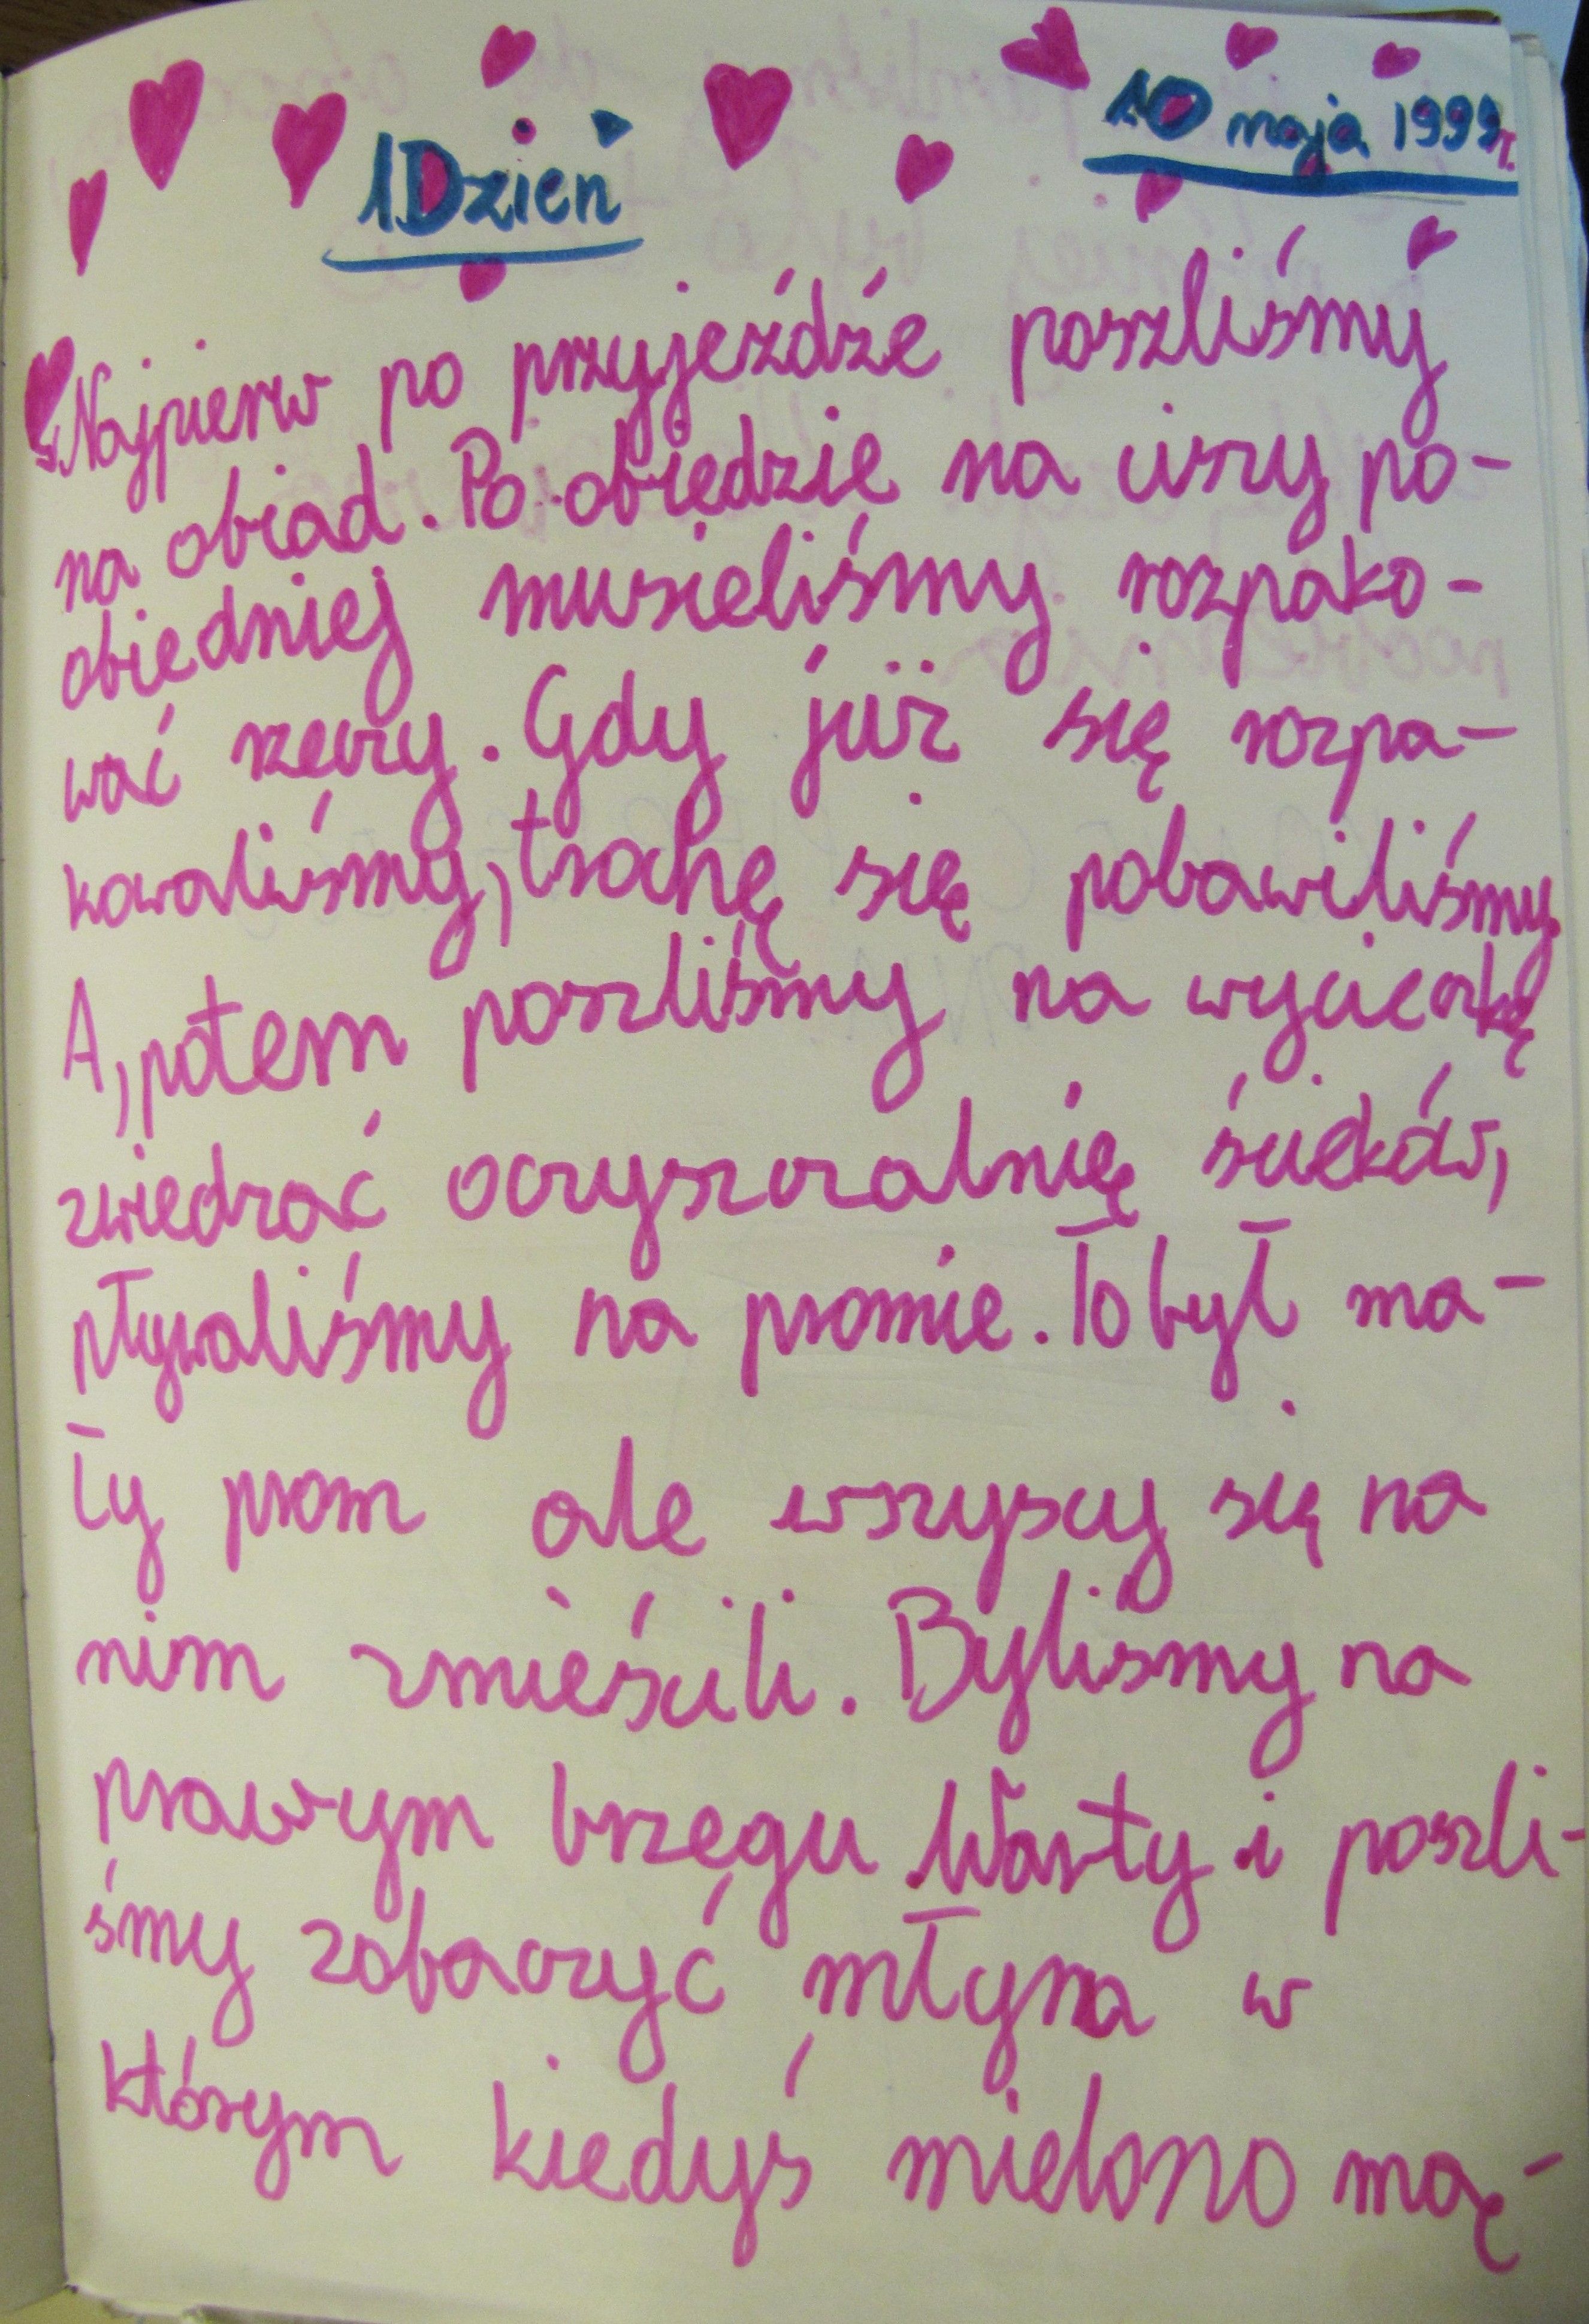 1 Dzień
10 maja 1999r.
Najpierw po przyjeździe poszliśmy
na obiad. Po obiedzie na ciszy po-
obiedniej musieliśmy rozpako-
wać rzeczy. Gdy już się rozpa-
kowaliśmy, trochę się pobawiliśmy.
A, potem poszliśmy na wycieczkę
zwiedzać oczyszczalnię ścieków,
pływaliśmy na promie. To był ma-
ły prom ale wszyscy się na
nim zmieścili. Byliśmy na
prawym brzegu Warty i poszli-
śmy zobaczyć młyna w
którym kiedyś mielono mą-